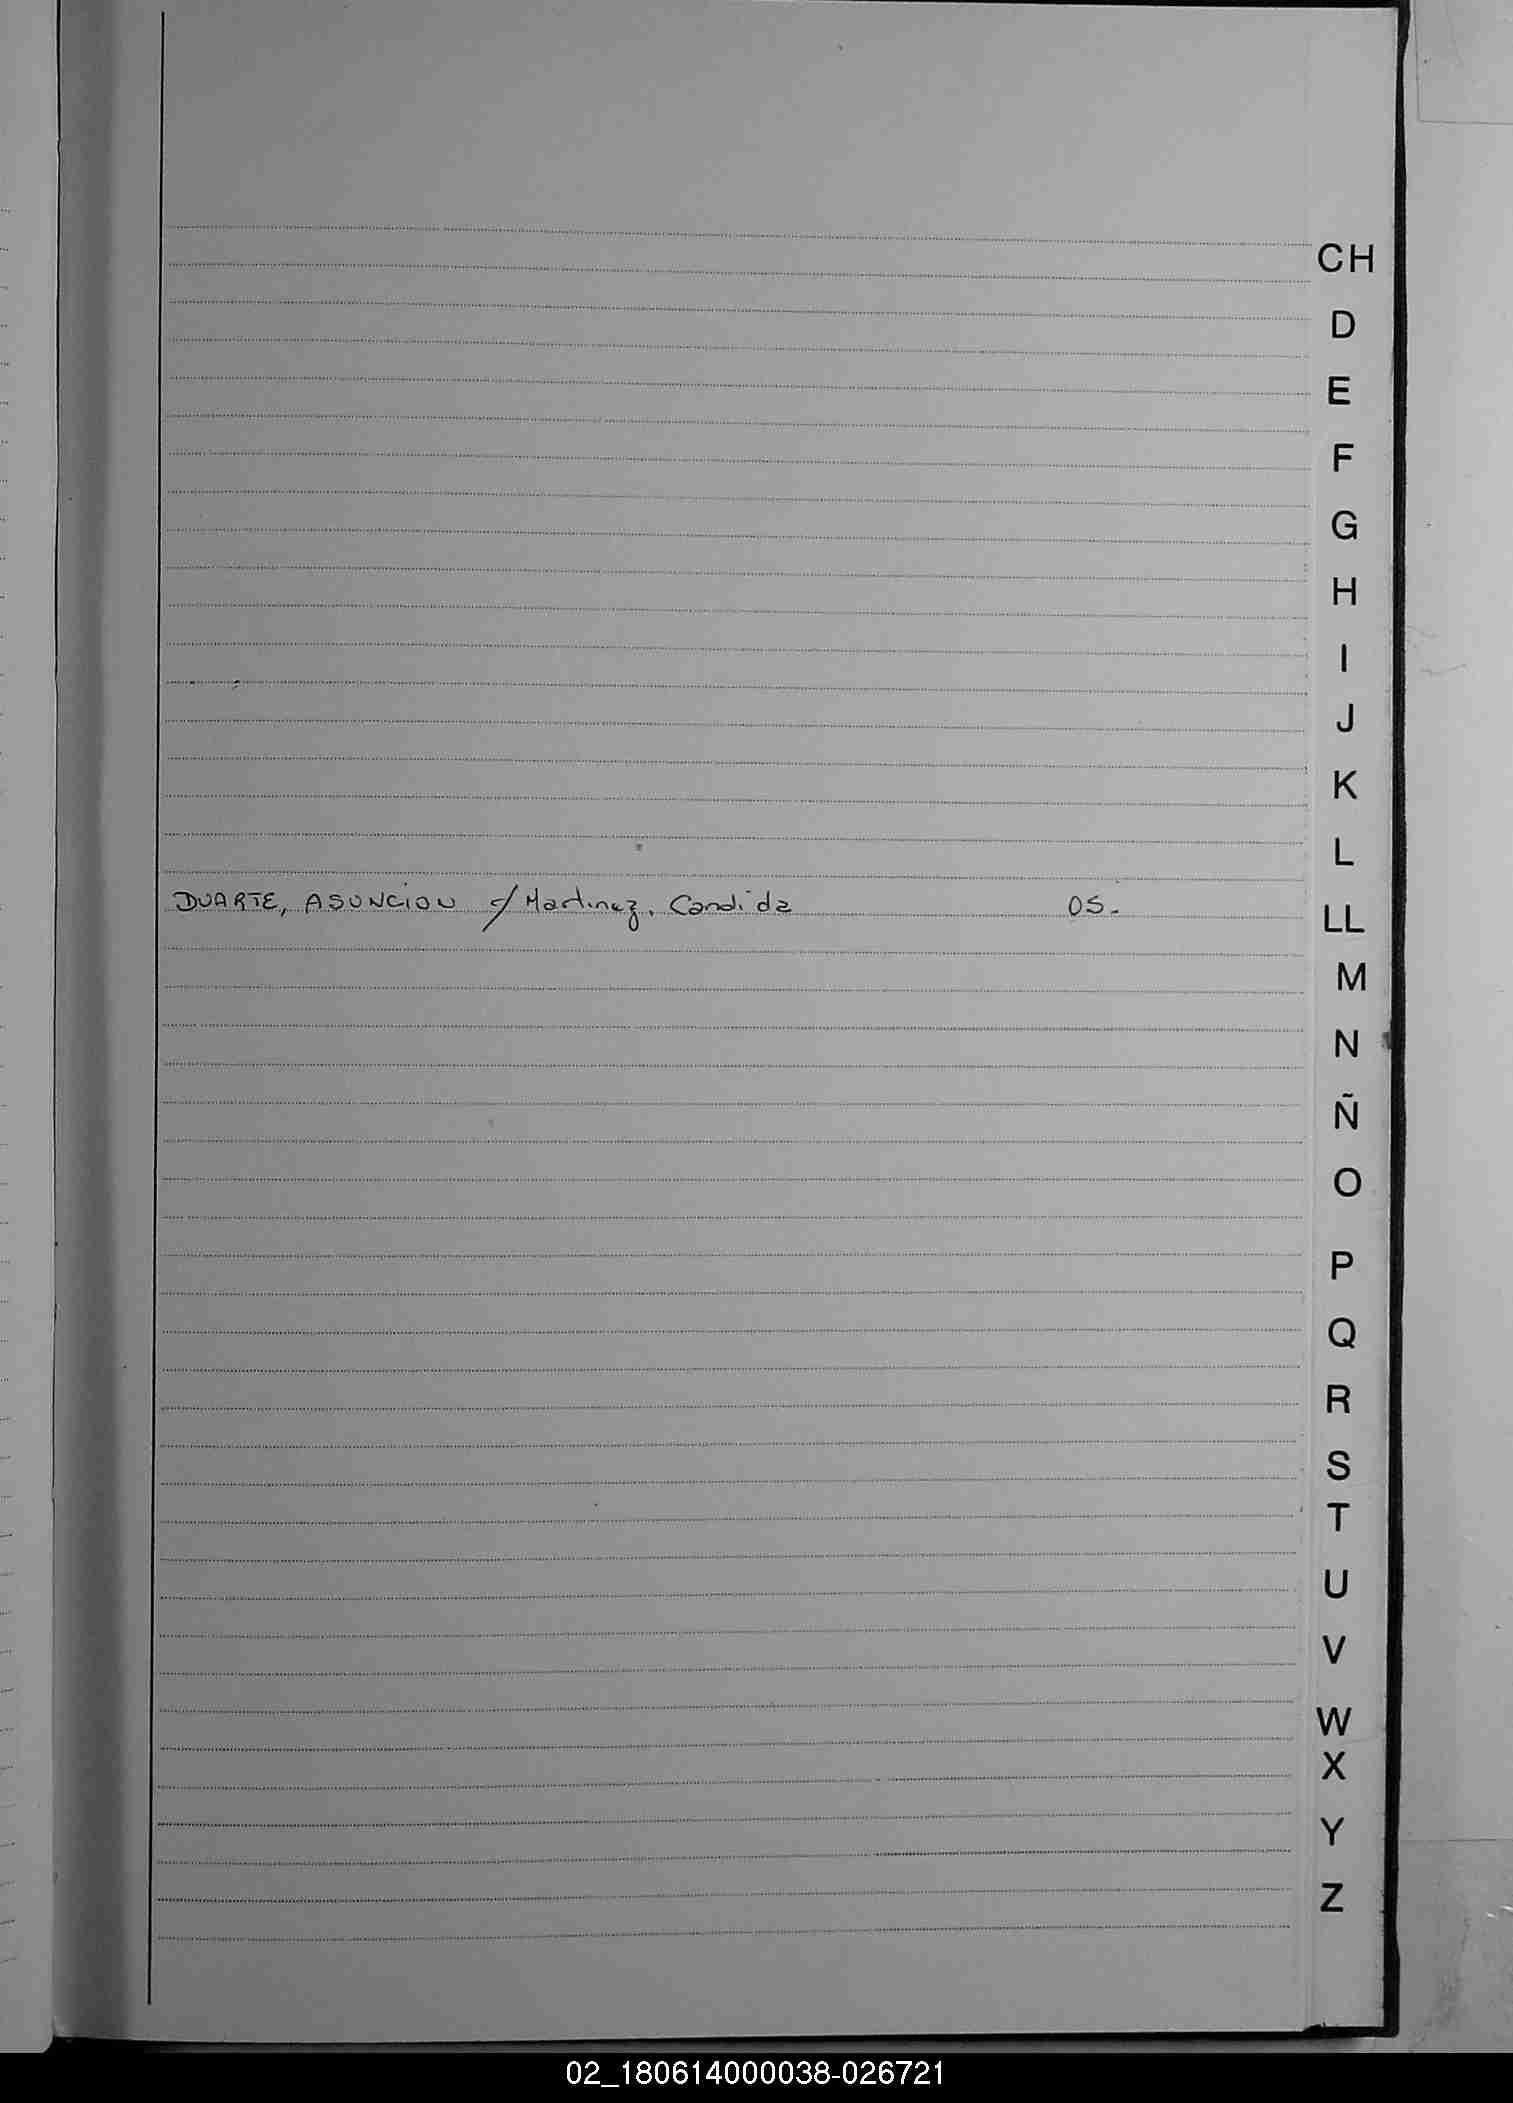 CH
D
E
F
G
H
I
J
K
L
DUARTE, ASUNCION c/ Martinez, Candida 05.
LL
M
N
Ñ
O
P
Q
R
S
T
U
V
W
X
Y
Z
02_180614000038-026721